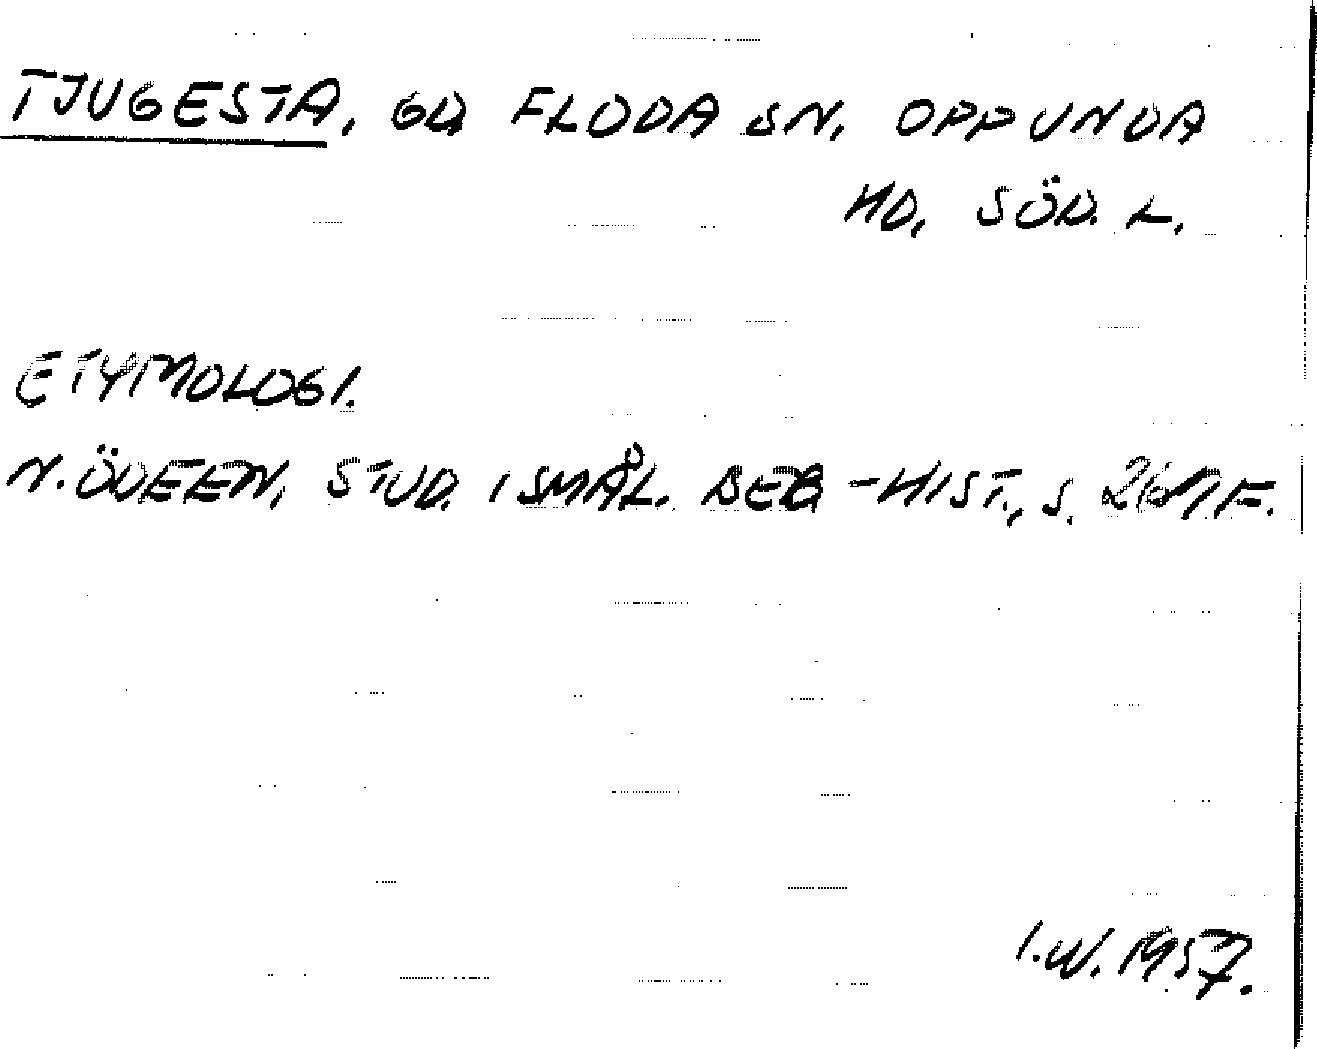 TJUGESTA, GD FLODA SN. OPPUNDA
HD. SÖD. L.
ETYMOLOGI.
N. ÖDEEN, STUD. I SMÅL. BEB-HIST., S. 261 F.
I.W. 1957.